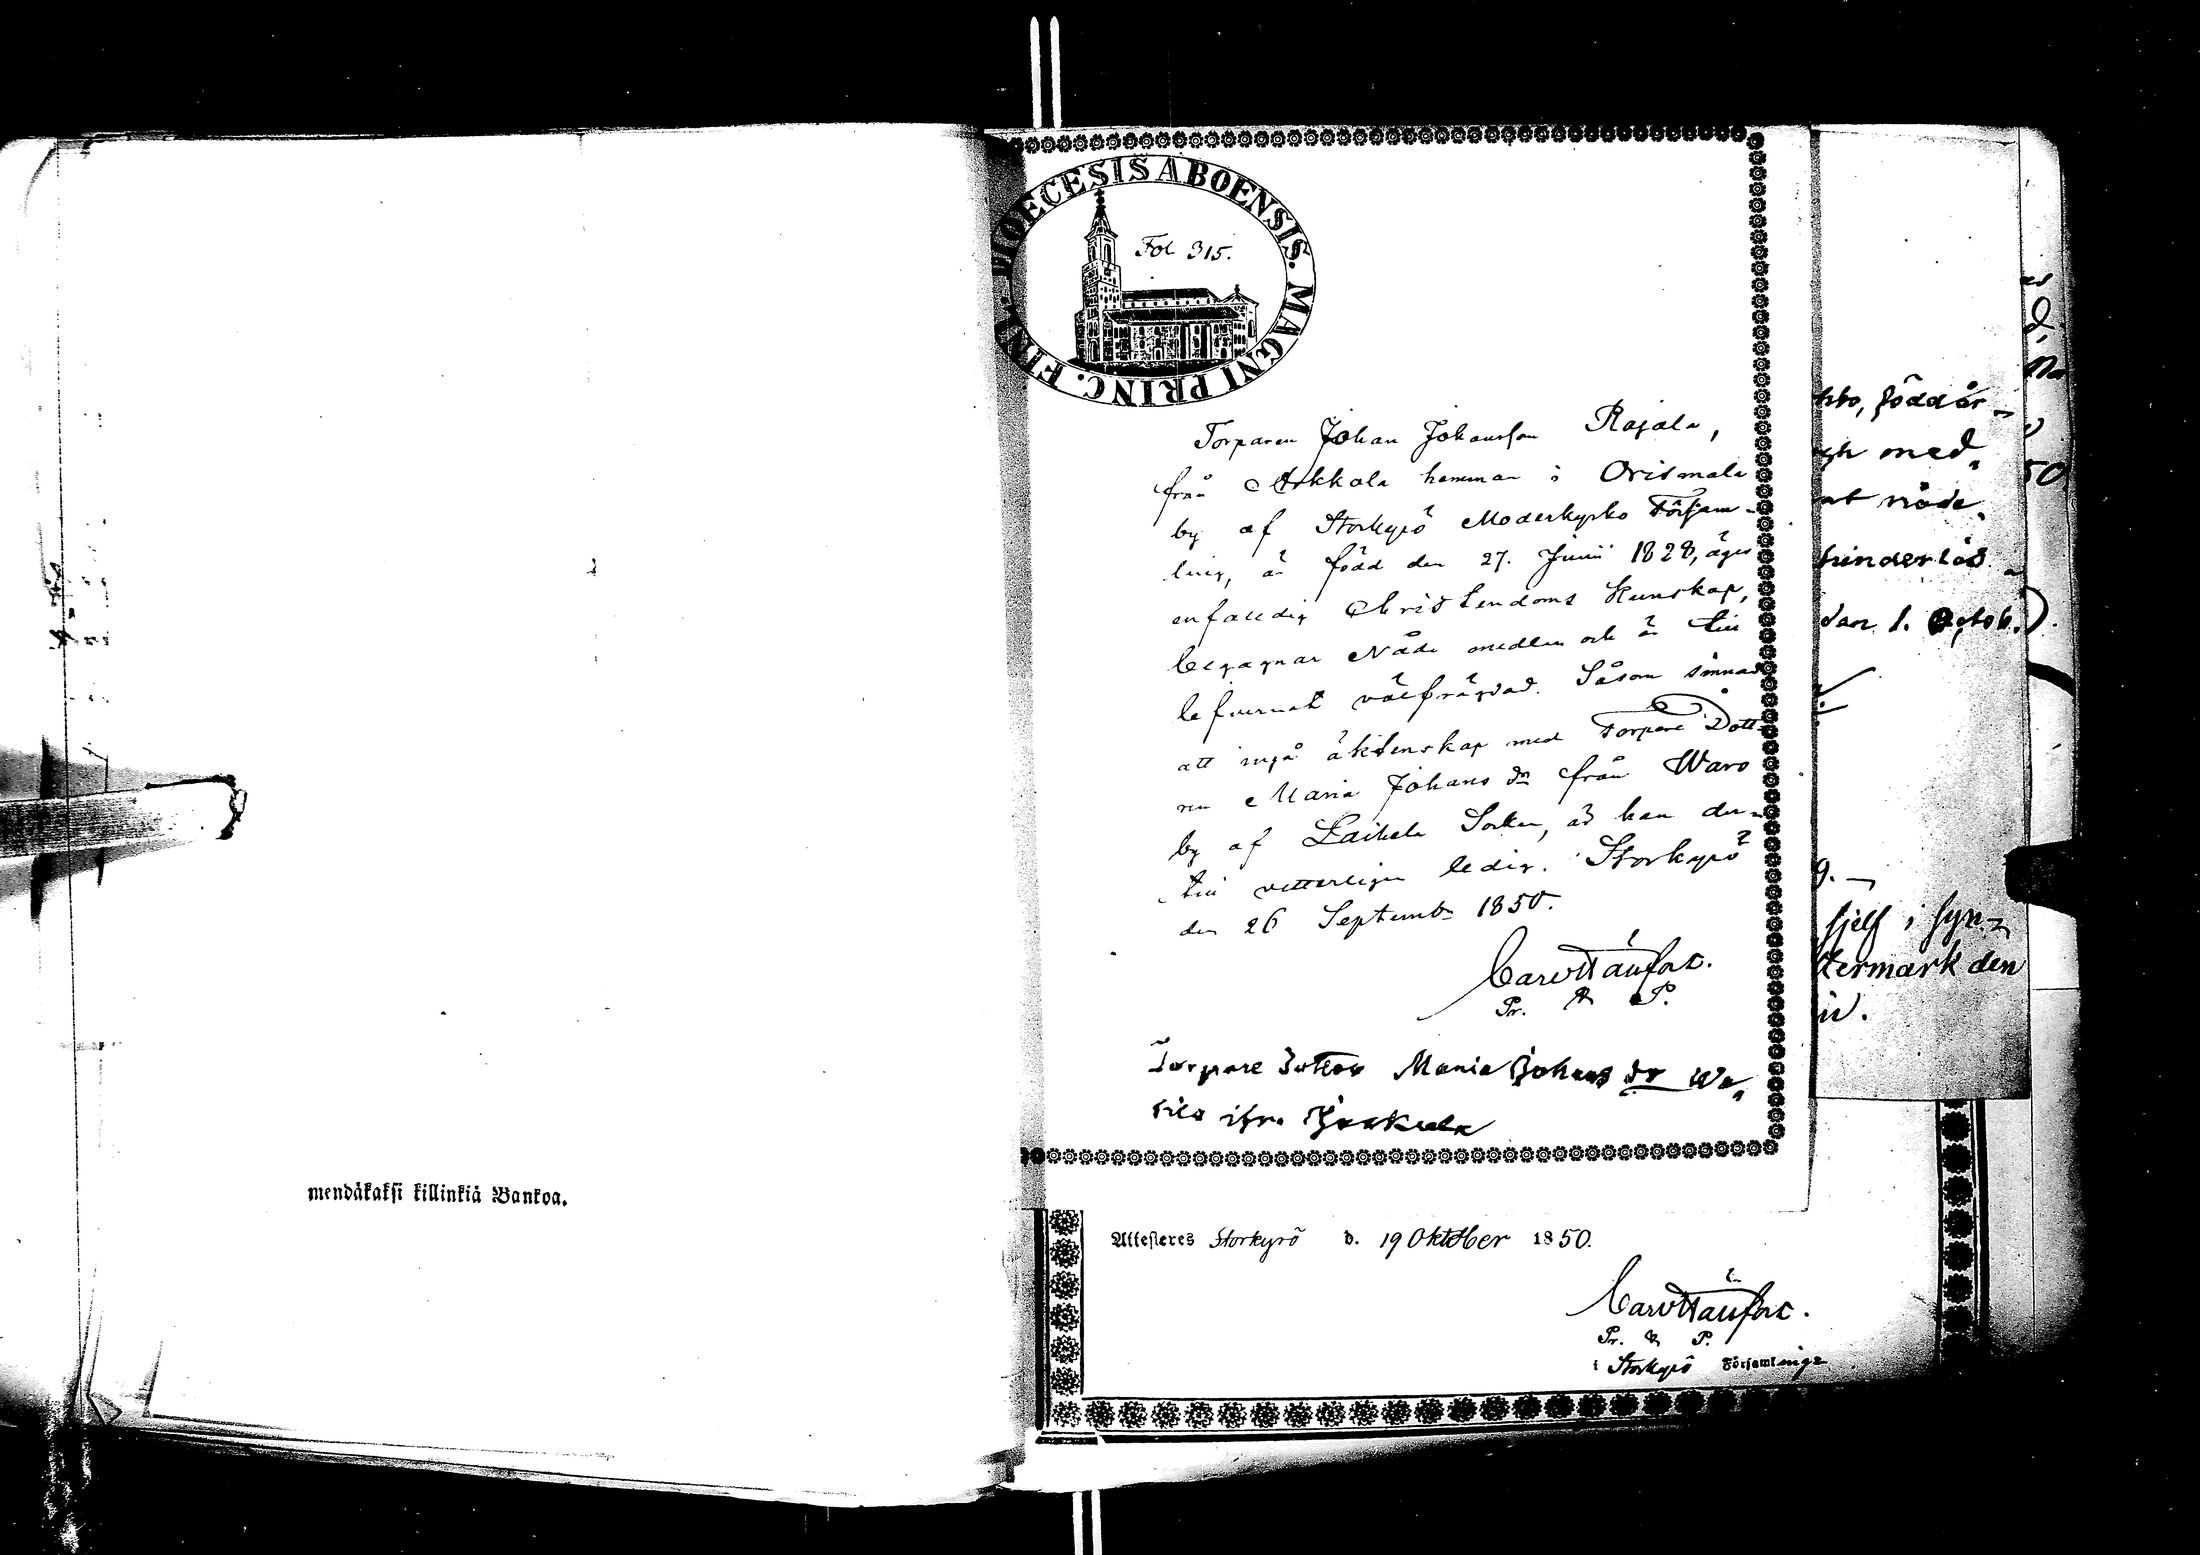 mendäkaksi killinkiä Bankoa.
DIOECESIS ABOENSIS. MAGNI PRINC. FINL.
Fol. 315.
Torparen Johan Johansson Rajala,
från Askkola hemman i Orismala
by af Storkyrö Moderkyrko Försam-
ling, är född den 27. Junii 1828, äger
enfaldig Christendoms Kunskap,
begagnar Nåde medlen och är till
lefvernet välfrägdad. Såsom sinnad
att ingå äktenskap med Torpare Dott-
ren Maria Johans dr från Waro
by af Laihela Socken, är han der-
till vetterligen ledig. Storkyrö
den 26 Septembr 1850.
Pr. & P.
Torpare Dotter Maria Johans dr Wa-
ifr.
Attesteres Storkyrö d. 19 Oktober 1850.
Pr. & P.
i Storkyrö Församlinge
född år
med
nåde
hinderlös
den 1. Octob.
sjelf i syn-
termark den
50